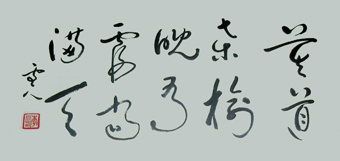 莫道
桑榆
晚为
霞尚
满天